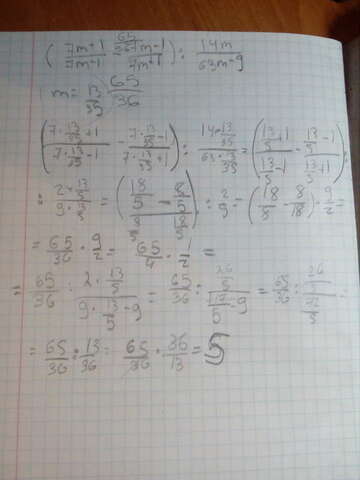 (7m+1/7m-1 - 7m-1/7m+1) : 14m/63m-9
m = 13/35 65/36
(7·13/35+1/7·13/35-1 - 7·13/35-1/7·13/35+1) : 14·13/35/63·13/35 = (13/5+1/13/5-1 - 13/5-1/13/5+1) :
: 2·13/5/9·13/5 = (18/5/8/5 - 8/5/18/5) : 2/9 = (18/8 - 8/18) · 9/2 =
= 65/36 · 9/2 = 65/4 · 1/2 =
= 65/36 : 2·13/5/9·13/5-9 = 65/36 : 26/5/117/5-9 = 65/36 : 26/5/72/5 =
= 65/36 : 13/36 = 65/36 · 36/13 = 5